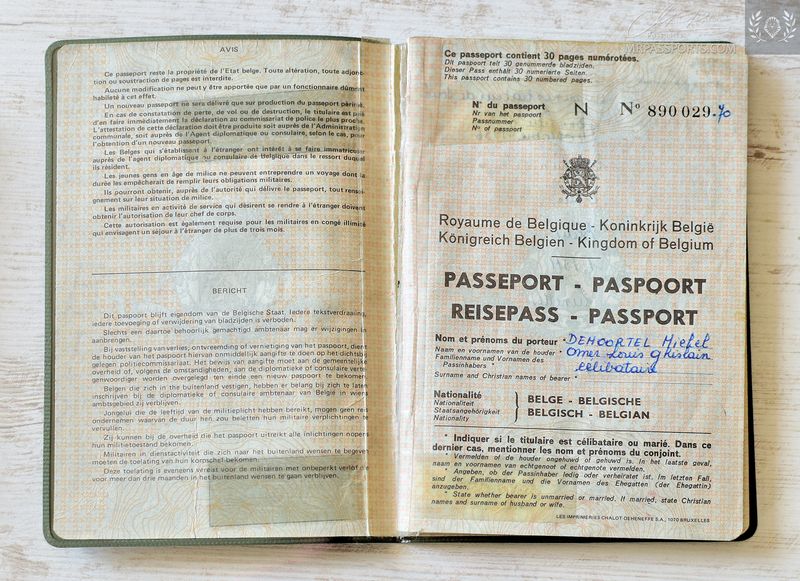 MRPASSPORTS.COM
AVIS
Ce passeport reste la propriété de l'Etat belge. Toute altération, toute adjonc-
tion ou soustraction de pages est interdite.
Aucune modification ne peut y être apportée que par un fonctionnaire dûment
habileté à cet effet.
Un nouveau passeport ne sera délivré que sur production du passeport périmé.
En cas de constatation de perte, de vol ou de destruction, le titulaire est prié
d'en faire immédiatement la déclaration au commissariat de police le plus proche.
L'attestation de cette déclaration doit être produite soit auprès de l'Administration
communale, soit auprès de l'Agent diplomatique ou consulaire, selon le cas, pour
l'obtention d'un nouveau passeport.
Les Belges qui s'établissent à l'étranger ont intérêt à se faire immatriculer
auprès de l'agent diplomatique ou consulaire de Belgique dans le ressort duquel
ils résident.
Les jeunes gens en âge de milice ne peuvent entreprendre un voyage dont la
durée les empêcherait de remplir leurs obligations militaires.
Ils pourront obtenir, auprès de l'autorité qui délivre le passeport, tout rensei-
gnement sur leur situation de milice.
Les militaires en activité de service qui désirent se rendre à l'étranger doivent
obtenir l'autorisation de leur chef de corps.
Cette autorisation est également requise pour les militaires en congé illimité
qui envisagent un séjour à l'étranger de plus de trois mois.
BERICHT
Dit paspoort blijft eigendom van de Belgische Staat. Iedere tekstverdraaiing,
iedere toevoeging of verwijdering van bladzijden is verboden.
Slechts een daartoe behoorlijk gemachtigd ambtenaar mag er wijzigingen in
aanbrengen.
Bij vaststelling van verlies, ontvreemding of vernietiging van het paspoort, dient
de houder van het paspoort hiervan onmiddellijk aangifte te doen op het dichtsbij
gelegen politiecommissariaat. Het bewijs van aangifte moet aan de gemeentelijke
overheid, of volgens de omstandigheden, aan de diplomatieke of consulaire verte-
genwoordiger worden overgelegd ten einde een nieuw paspoort te bekomen.
Belgen die zich in het buitenland vestigen, hebben er belang bij zich te laten
inschrijven bij de diplomatieke of consulaire ambtenaar van België in wiens
ambtsgebied zij verblijven.
Jongelui die de leeftijd van de militieplicht hebben bereikt, mogen geen reis
ondernemen waarvan de duur hen zou beletten hun militaire verplichtingen te
vervullen.
Zij kunnen bij de overheid die het paspoort uitreikt alle inlichtingen nopens
hun militietoestand bekomen.
Militairen in dienstactiviteit die zich naar het buitenland wensen te begeven
moeten de toelating van hun korpschef bekomen.
Deze toelating is eveneens vereist voor de militairen met onbeperkt verlof die
voor meer dan drie maanden in het buitenland wensen te gaan verblijven.
Ce passeport contient 30 pages numérotées.
Dit paspoort telt 30 genummerde bladzijden.
Dieser Pass enthält 30 numerierte Seiten.
This passport contains 30 numbered pages.
N° du passeport N N° 890029.70
Nr van het paspoort
Passnummer
N° of passport
Royaume de Belgique - Koninkrijk België
Königreich Belgien - Kingdom of Belgium
PASSEPORT - PASPOORT
REISEPASS - PASSPORT
Nom et prénoms du porteur · DEHOORTEL Michel
Naam en voornamen van de houder · Omer Louis Ghislain
Familienname und Vornamen des
Passinhabers * célibataire
Surname and Christian names of bearer
Nationalité
Nationaliteit
Staatsangehörigkeit
Nationality
BELGE - BELGISCHE
BELGISCH - BELGIAN
* Indiquer si le titulaire est célibataire ou marié. Dans ce
dernier cas, mentionner les nom et prénoms du conjoint.
* Vermelden of de houder ongehuwd of gehuwd is. In het laatste geval,
naam en voornamen van echtgenoot of echtgenote vermelden.
* Angeben, ob der Passinhaber ledig oder verheiratet ist. Im letzten Fall,
sind der Familienname und die Vornamen des Ehegatten (der Ehegattin)
anzugeben.
* State whether bearer is unmarried or married. If married, state Christian
names and surname of husband or wife.
LES IMPRIMERIES CHALOT-DEHENEFFE S.A., 1070 BRUXELLES